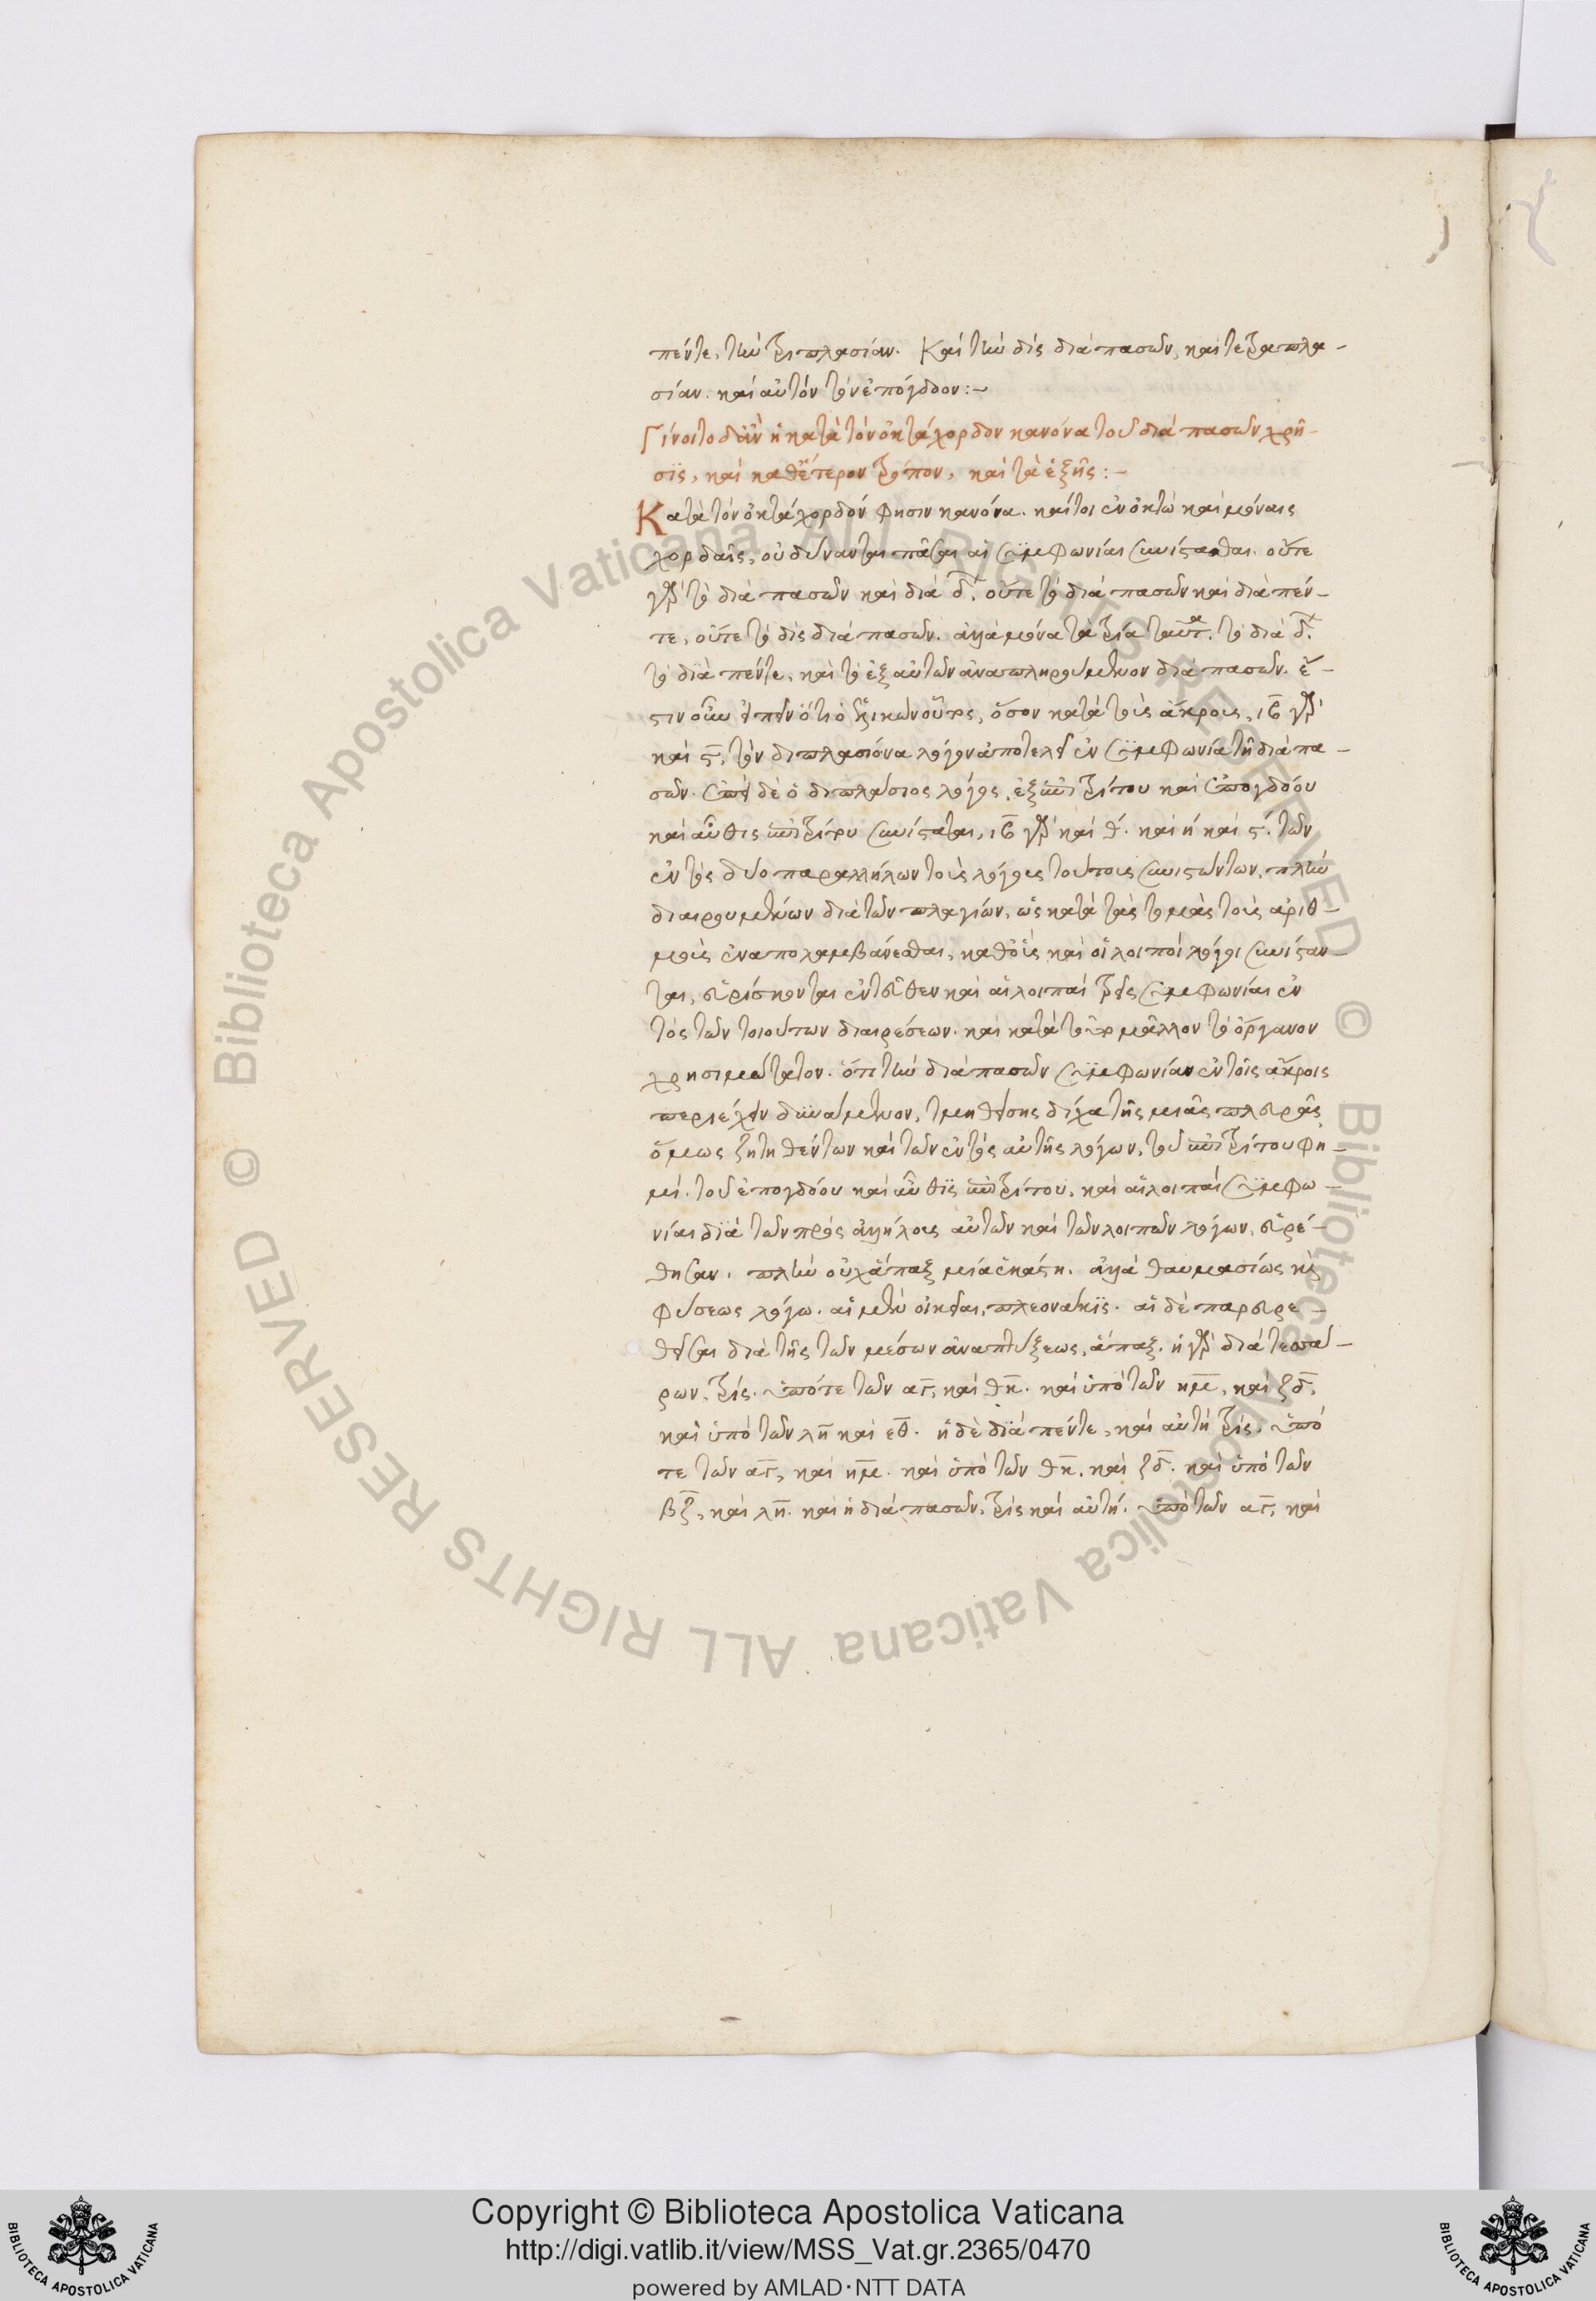 πέντε, τὴν τριπλασίαν. Καὶ τὴν δὶς διὰ πασῶν, καὶ τετραπλα-
σίαν. καὶ αὐτὸν τὸν ἐπόγδοον:-
Γίνοιτο δ' ἂν ἡ κατὰ τὸν ὀκτάχορδον κανόνα τοῦ διὰ πασῶν χρῆ-
σις, καὶ καθ' ἕτερον τρόπον, καὶ τὰ ἑξῆς:-
Κατὰ τὸν ὀκτάχορδόν φησιν κανόνα. καίτοι ἐν ὀκτὼ καὶ μόναις
χορδαῖς, οὐ δύνανται πᾶσαι αἱ συμφωνίαι συνίστασθαι. οὔτε
γὰρ τὸ διὰ πασῶν καὶ διὰ δ. οὔτε τὸ διὰ πασῶν καὶ διὰ πέν-
τε, οὔτε τὸ δὶς διὰ πασῶν. ἀλλὰ μόνα τὰ τρία ταῦτα. τὸ διὰ δ.
τὸ διὰ πέντε, καὶ τὸ ἐξ αὐτῶν ἀναπληρούμενον διὰ πασῶν. ἔ-
στιν οὖν εἰπεῖν ὅτι ὁ ἑλικὼν οὗτος, ὅσον κατὰ τοὺς ἄκρους, ιβ γὰρ
καὶ ς, τὸν διπλασίονα λόγον ἀποτελεῖ ἐν συμφωνία τῆ διὰ πα-
σῶν. ἐπεὶ δὲ ὁ διπλάσιος λόγος, ἐξ ἐπιτρίτου καὶ ἐπογδόου
καὶ αὖθις ἐπιτρίτου συνίσταται, ιβ γὰρ καὶ θ. καὶ η καὶ ς. τῶν
ἐντὸς δύο παραλλήλων τοὺς λόγους τούτους συνιστώντων, πλὴν
διαιρουμένων διὰ τῶν πλαγίων, ὡς κατὰ τὰς τομὰς τοὺς ἀριθ-
μοὺς ἐναπολαμβάνεσθαι, καθ' οὓς καὶ οἱ λοιποὶ λόγοι συνίσταν
ται, εὑρίσκονται ἐντεῦθεν καὶ αἱ λοιπαὶ τρεῖς συμφωνίαι ἐν
τὸς τῶν τοιούτων διαιρέσεων. καὶ κατὰ τοῦτο μᾶλλον τὸ ὄργανον
χρησιμώτατον. ὅτι τὴν διὰ πασῶν συμφωνίαν ἐν τοῖς ἄκροις
περιέχειν δυνάμενον, τμηθείσης δίχα τῆς μιᾶς πλευρᾶς
ὅμως ζητηθέντων καὶ τῶν ἐντὸς αὐτῆς λόγων, τοῦ ἐπιτρίτου φη-
μί. τοῦ ἐπογδόου καὶ αὖθις ἐπιτρίτου. καὶ αἱ λοιπαὶ συμφω-
νίαι διὰ τῶν πρὸς ἀλλήλους αὐτῶν καὶ τῶν λοιπῶν λόγων, εὑρέ-
θησαν. πλὴν οὐχ ἅπαξ μία ἑκάστη. ἀλλὰ θαυμασίως κὶ
φύσεως λόγω. αἱ μὲν οἰκεῖαι, πλεονάκις. αἱ δὲ παρευρε-
θεῖσαι διὰ τῆς τῶν μέσων ἀναπτύξεως, ἅπαξ. ἡ γὰρ διὰ τεσσά-
ρων, τρίς. ὑπό τε τῶν αγ, καὶ θκ. καὶ ὑπὸ τῶν ημ, καὶ ζδ,
καὶ ὑπὸ τῶν λη καὶ εθ. ἡ δὲ διὰ πέντε, καὶ αὐτὴ τρίς. ὑπό
τε τῶν αγ, καὶ ημ. καὶ ὑπὸ τῶν θκ, καὶ ζδ. καὶ ὑπὸ τῶν
βξ, καὶ λη. καὶ ἡ διὰ πασῶν, τρὶς καὶ αὐτή. ὑπὸ τῶν αγ, καὶ
Copyright © Biblioteca Apostolica Vaticana
http://digi.vatlib.it/view/MSS_Vat.gr.2365/0470
powered by AMLAD·NTT DATA
BIBLIOTECA APOSTOLICA VATICANA
BIBLIOTECA APOSTOLICA VATICANA
© Biblioteca Apostolica Vaticana ALL RIGHTS RESERVED
© Biblioteca Apostolica Vaticana ALL RIGHTS RESERVED